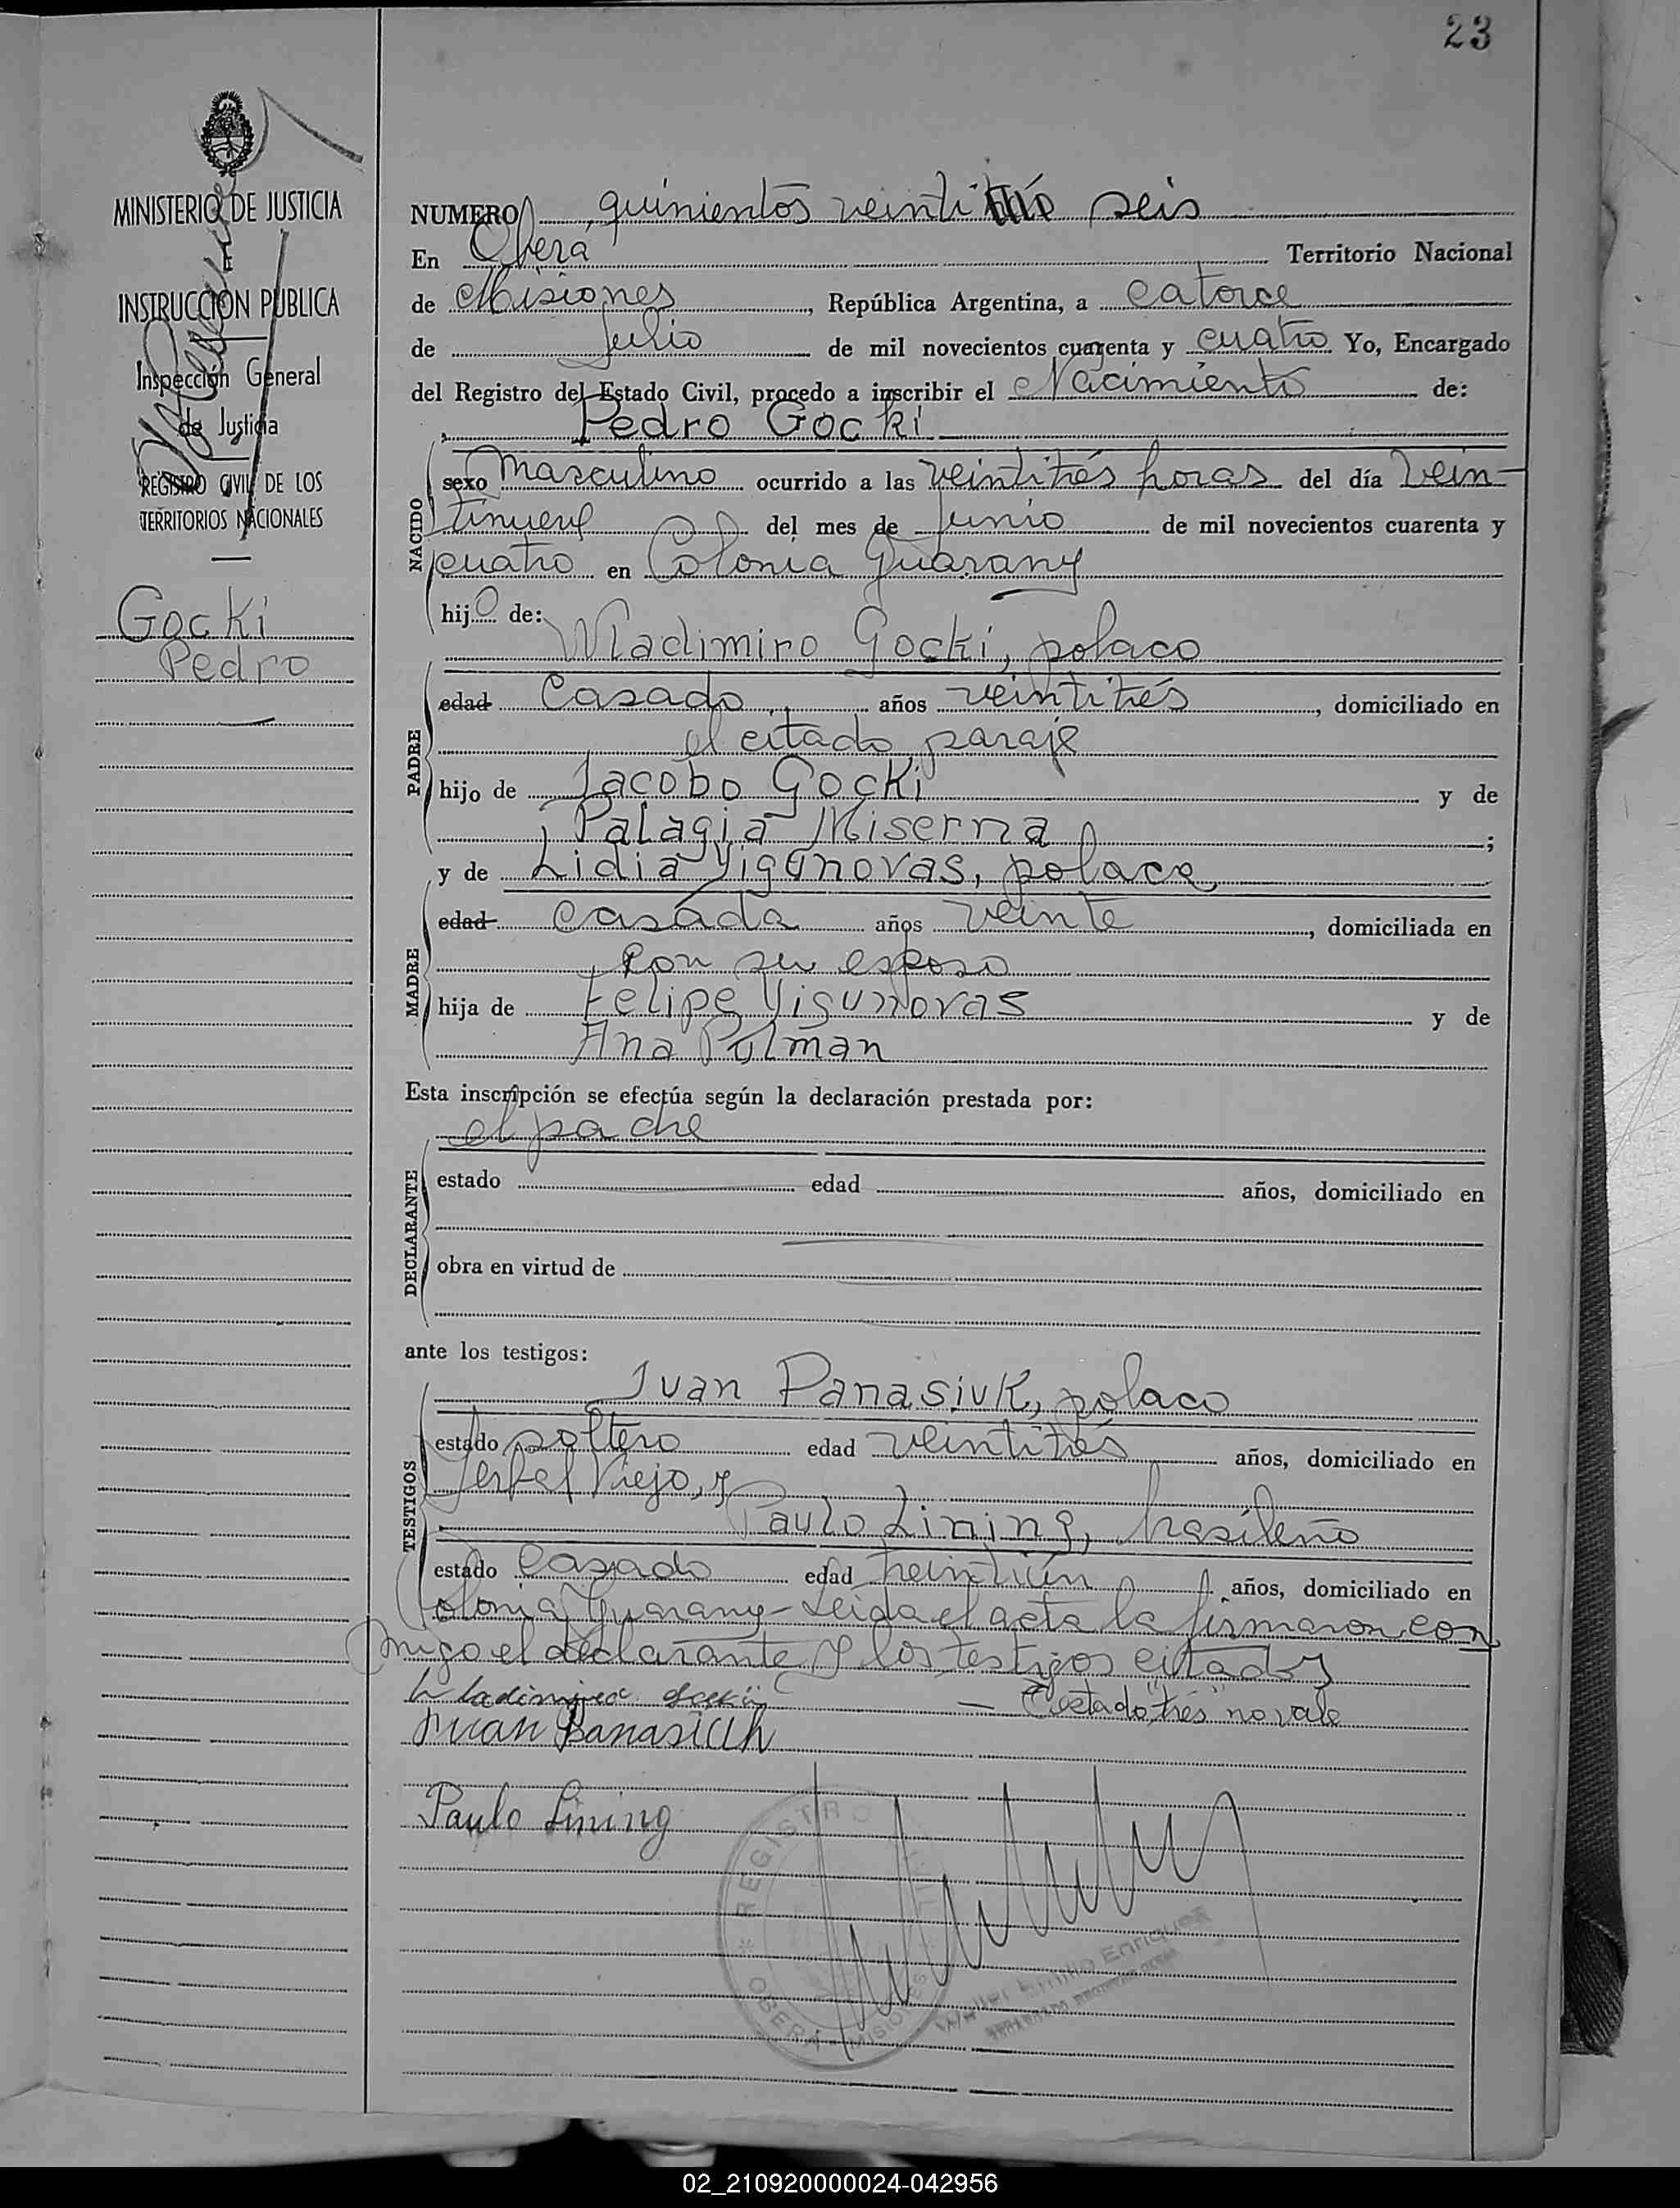 23
MINISTERIO DE JUSTICIA
INSTRUCCION PUBLICA
Inspección General
de Justicia
REGISTRO CIVIL DE LOS
TERRITORIOS NACIONALES
Gocki
Pedro
NUMERO quinientos veintitrés seis
En Oberá Territorio Nacional
de Misiones, República Argentina, a catorce
de Julio de mil novecientos cuarenta y cuatro Yo, Encargado
del Registro del Estado Civil, procedo a inscribir el Nacimiento de:
Pedro Gocki
NACIDO
sexo masculino ocurrido a las veintitrés horas del día vein-
tinueve del mes de Junio de mil novecientos cuarenta y
cuatro en Colonia Guarany
hijo de:
Wladimiro Gocki, polaco
PADRE
edad casado años veintitrés, domiciliado en
el citado paraje
hijo de Jacobo Gocki y de
Palagia Miserna;
y de Lidia Yigunovas, polaca,
MADRE
edad casada años veinte, domiciliada en
con su esposo
hija de Felipe Yigunovas y de
Ana Pulman
Esta inscripción se efectúa según la declaración prestada por:
el padre
DECLARANTE
estado edad años, domiciliado en
obra en virtud de
ante los testigos:
Juan Panasiuk, polaco
TESTIGOS
estado soltero edad veintitrés años, domiciliado en
Yerbal Viejo, y
Paulo Lining, brasileño
estado casado edad treintiún años, domiciliado en
Colonia Guarany - Leida el acta la firmaron con
migo el declarante y los testigos citados
Wladimiro Gocki — Testado "trés" no vale
Juan Panasiuk
Paulo Lining
REGISTRO CIVIL
OBERÁ MISIONES
Walter Emilio Enriquez
02_210920000024-042956